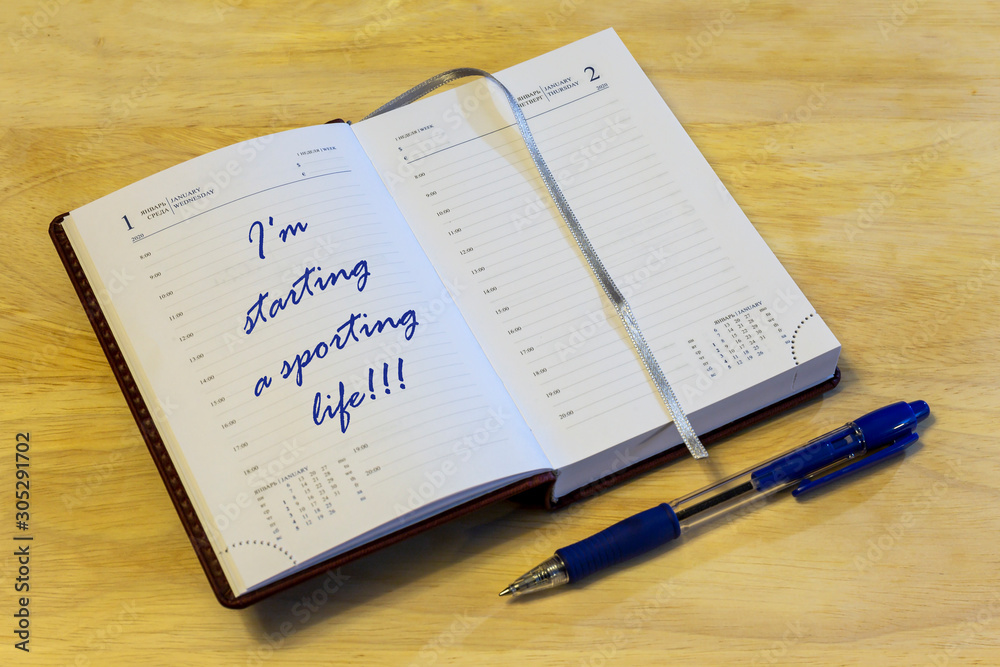 1
ЯНВАРЬ | JANUARY
СРЕДА | WEDNESDAY
2020
1 НЕДЕЛЯ | WEEK
$
€
8:00
9:00
10:00
11:00
12:00
13:00
14:00
15:00
16:00
17:00
18:00
19:00
20:00
I'm
starting
a sporting
life!!!
ЯНВАРЬ | JANUARY
1 НЕДЕЛЯ | WEEK
$
€
ЯНВАРЬ | JANUARY
ЧЕТВЕРГ | THURSDAY
2
2020
8:00
9:00
10:00
11:00
12:00
13:00
14:00
15:00
16:00
17:00
18:00
19:00
20:00
ЯНВАРЬ | JANUARY
6 13 20 27
Adobe Stock | #305291702